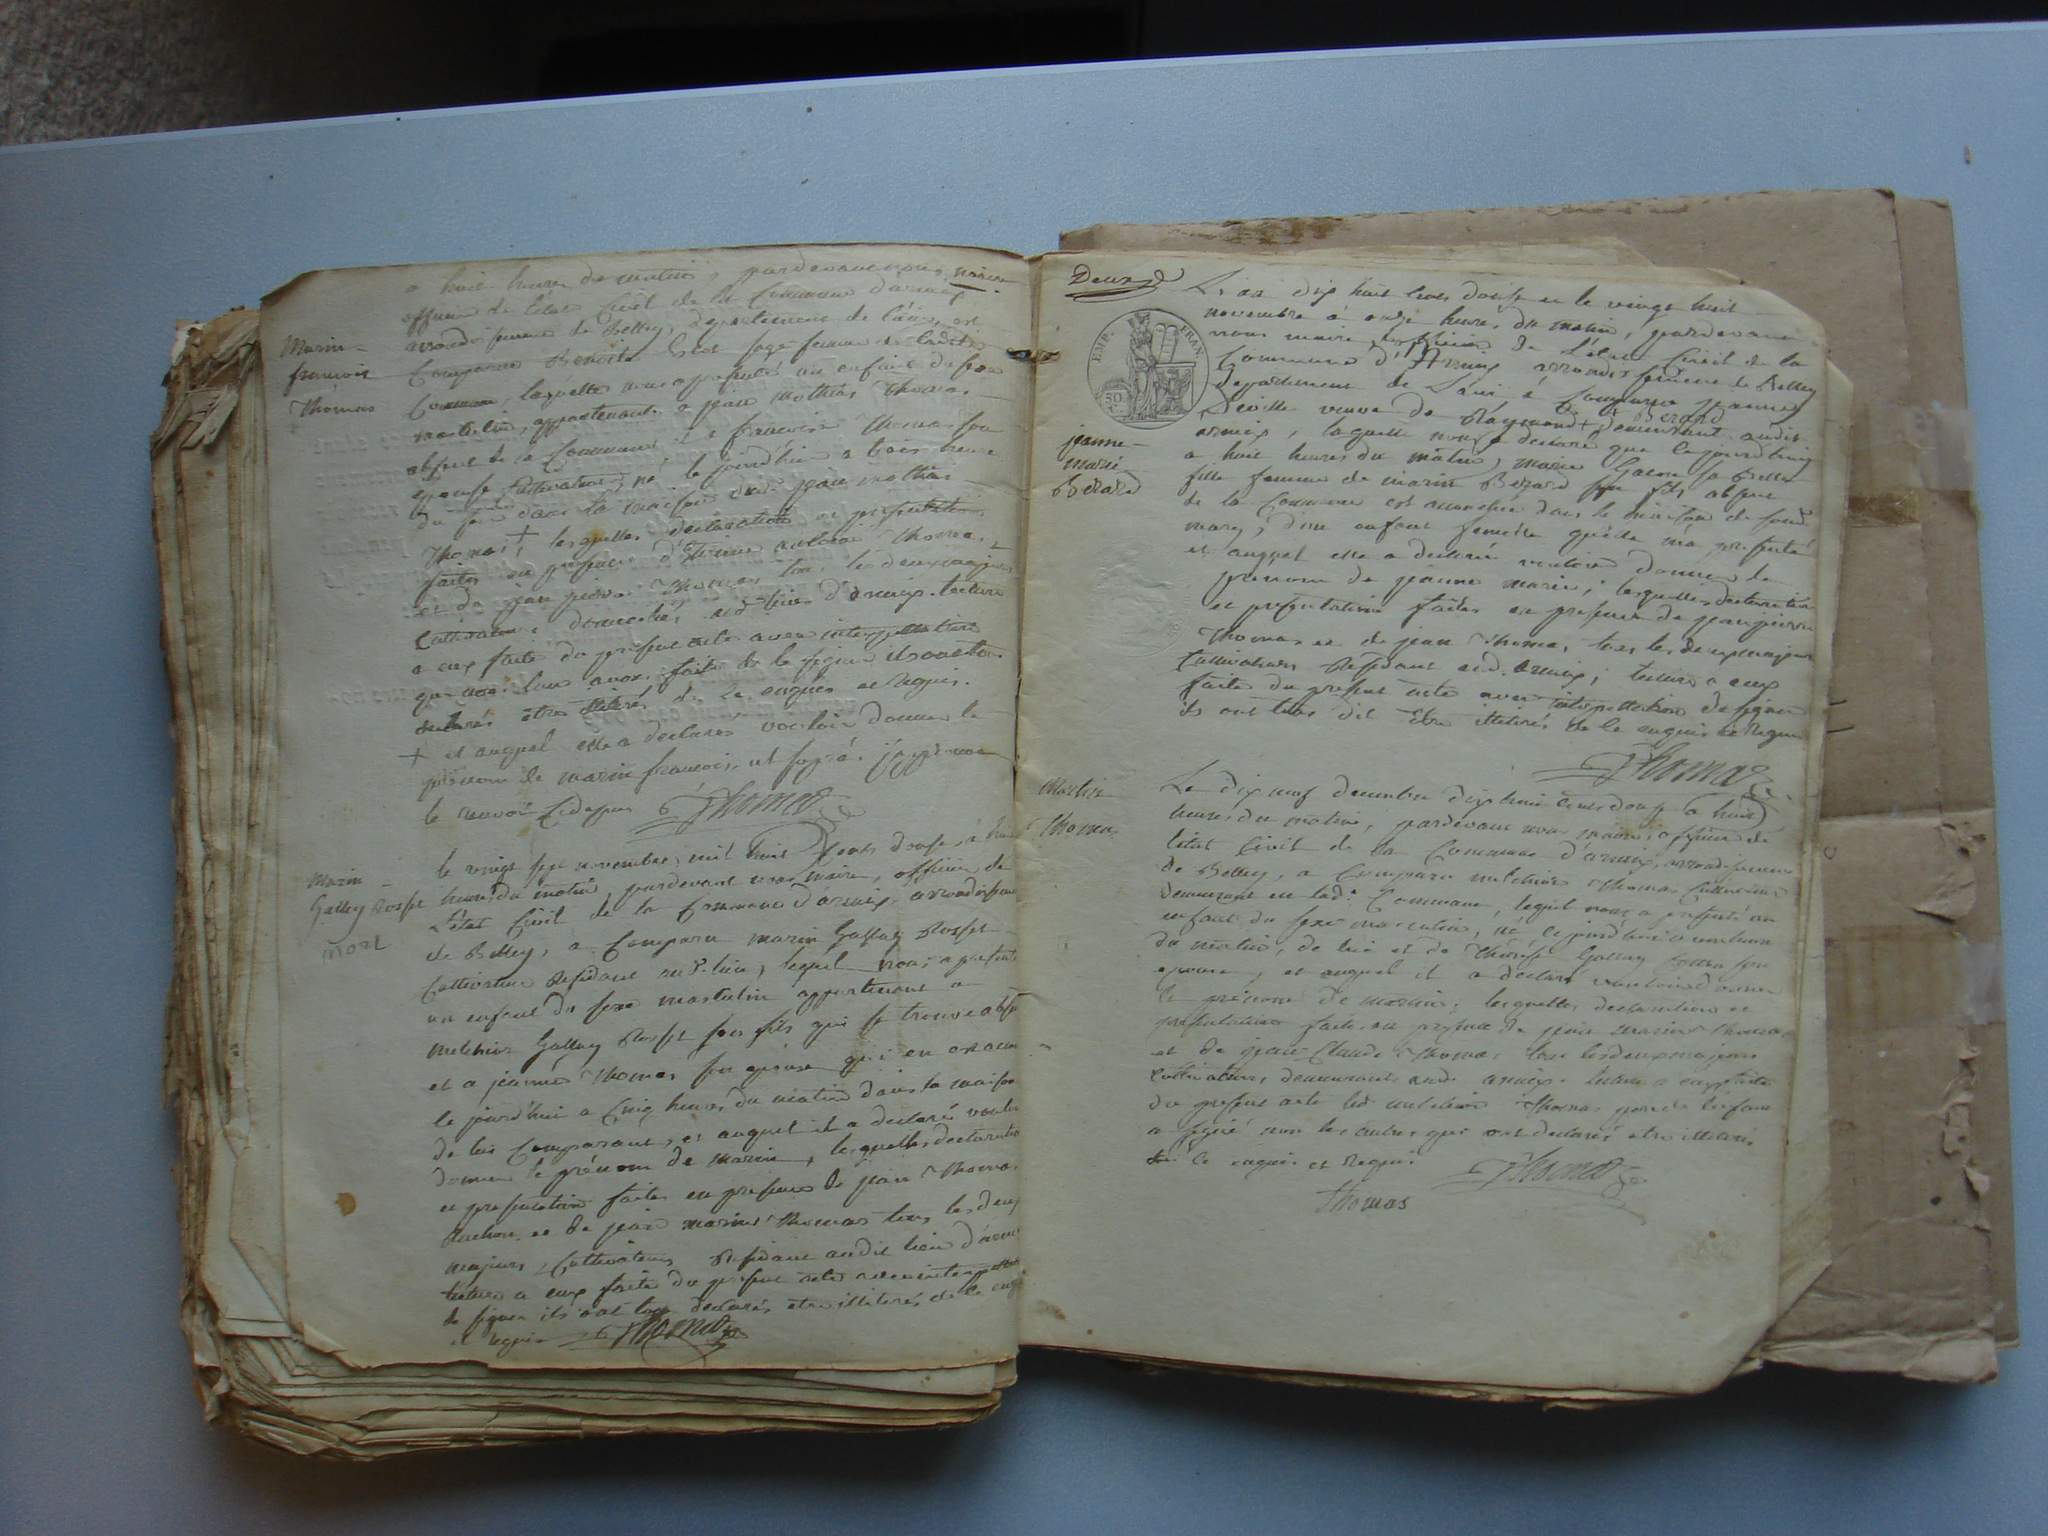 a huit heures du matin, pardevant nous, maire
officier de l'état Civil de la Commune d'armix
arrondissement de Belley, département de l'ain, est
Marin
françois
Thomas
Comparue Benoite sage femme de ladite
Commune, laquelle nous a presenté un enfant du sexe
masculin, appartenant a jean mathias Thomas
absent de la Commune et a françoise Thomas son
épouse Cultivateurs, né le jourd'hui a trois heures
du jour dans la maison dud. jean mathias
Thomas +, lesquelles declaration et presentation
faites en presence d'Etienne antoine Thomas,
et de jean pierre Thomas tous les deux majeurs
Cultivateurs domiciliés aud. lieu d'armix. lecture
a eux faite du present acte avec interpellation
que nous leur avons faite de le signer ils ont tous
declarés etres illiterés de ce enquis et requis.
+ et auquel elle a declarés vouloir donner le
prénom de marin françois, ut supra. j'approuve
le renvoi Cidessus Thomas
Marin
Gallay Rosset
mort
le vingt sept novembre, mil huit Cents douse, a huit
heures du matin, pardevant nous maire, officier de
L'état Civil de la Commune d'armix, arrondissement
de Belley, a Comparu marin Gallay Rosset
Cultivateur Residant aud. lieu, lequel nous a presenté
un enfant du sexe masculin appartenant a
melchior Gallay Rosset son fils qui se trouve absent
et a jeanne Thomas son épouse qui en est accou
le jourd'hui a Cinq heures du matin dans la maison
de lui Comparant, et auquel il a declaré vouloir
donner le prénom de marin, lesquelles declaration
et presentation faites en presence de jean Thomas
Ruchon et de jean marin Thomas tous les deux
majeurs, Cultivateurs Residant audit lieu d'armix
lecture a eux faite du present acte avec interpellation
de signer ils ont tous declarés etre illiterés de ce enquis
et requis Thomas
Deux
EMP. FRAN.
50
L'an dix huit Cents douse et le vingt huit
novembre a onze heures du matin, pardevant
nous maire, officier de L'état Civil de la
Commune d'Armix arrondissement de Belley
département de L'ain, a Comparue jeanne
Berard
Deville veuve de Raymond + demeurant audit
armix, laquelle nous a declaré que le jourd'huy
jeanne
marie
Berard
a huit heures du matin, marie Gacon sa Belle
fille femme de marin Berard son fils absent
de la Commune est accouchée dans la maison de sond.
mary, d'un enfant femelle qu'elle ma presenté
et auquel elle a declarée vouloir donner le
prénom de jeanne marie; lesquelles declaration
et presentation faites en presence de jean pierre
Thomas et de jean Thomas tous les deux majeurs
Cultivateurs Residant aud. armix; lecture a eux
faite du present acte avec interpellation de signer
ils ont tous dit être illiterés de ce enquis et Requis
Thomas
Martin
Thomas
Le dix neuf decembre dix huit Cents douse a huit
heures du matin, pardevant nous maire, officier de
l'état Civil de la Commune d'armix, arrondissement
de Belley, a Comparu melchior Thomas Cultivateur
demeurant en lad. Commune, lequel nous a presenté un
enfant du sexe masculin, né ce jourd'hui a une heure
du matin, de lui et de Thérèse Gallay Rosset son
épouse, et auquel il a declaré vouloir donner
le prénom de martin; lesquelles declaration et
presentation faites en presence de jean marin Thomas
et de jean Claude Thomas tous les deux majeurs
cultivateurs demeurants aud. armix. lecture a eux faite
du present acte led. melchior Thomas pere de l'enfant
a signé non les autres qui ont declarés etre illiterés
de ce enquis et Requis Thomas
Thomas